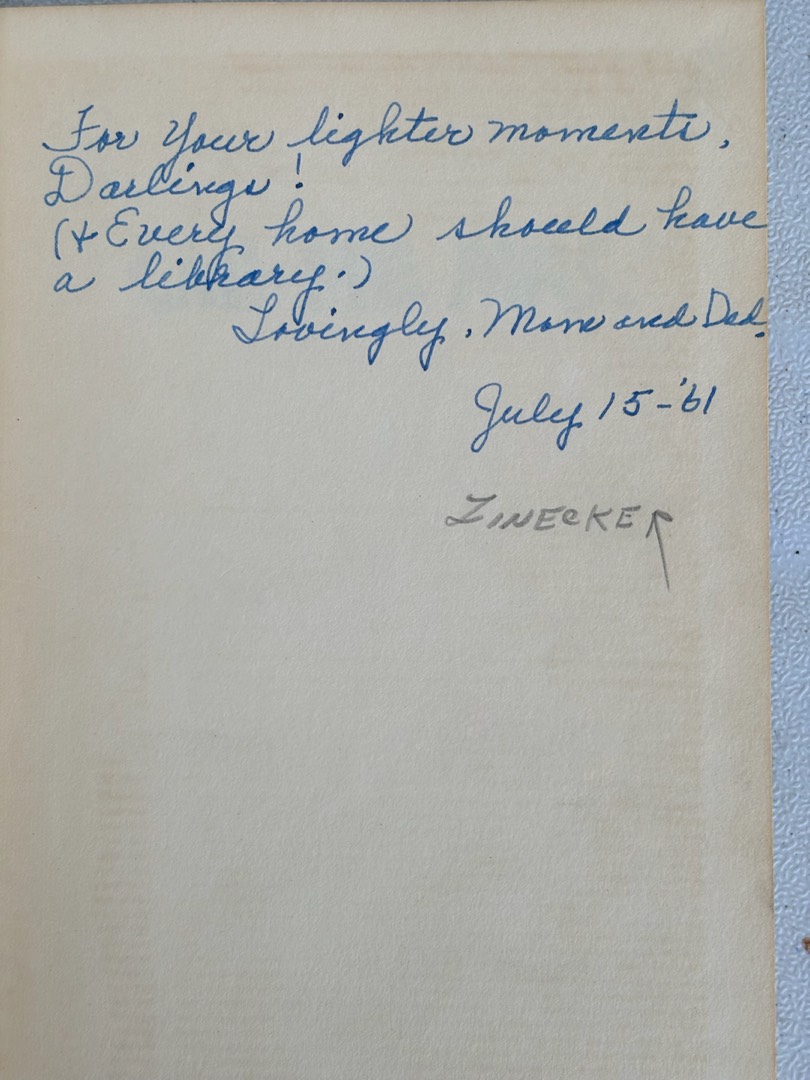 For Your lighter moments,
Darlings!
(+ Every home should have
a library.)
Lovingly, Mom and Dad.
July 15-'61
ZINECKER